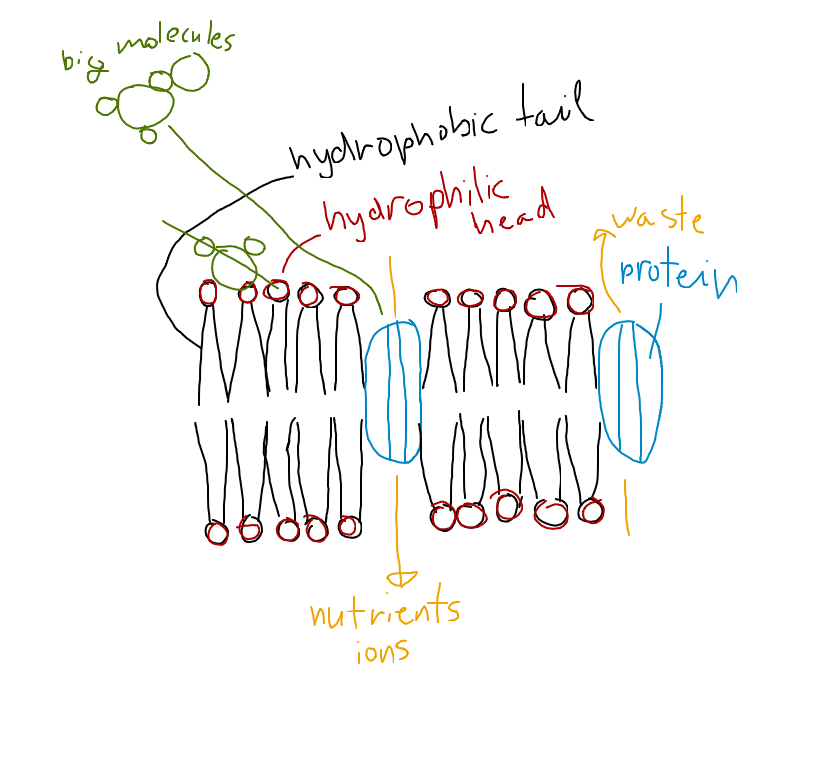 big molecules
hydrophobic tail
hydrophilic
head
waste
protein
nutrients
ions